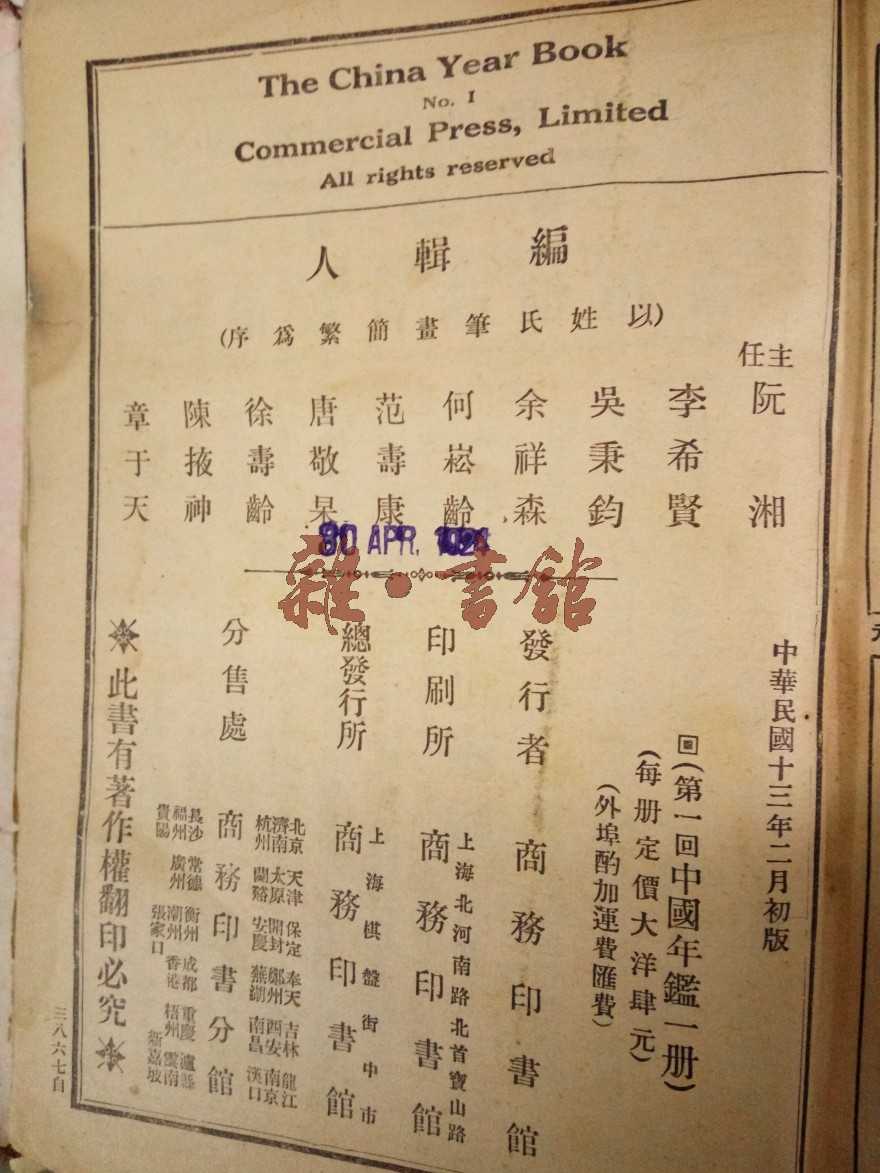 The China Year Book
No. 1
Commercial Press, Limited
All rights reserved
編輯人
(以姓氏筆畫簡繁爲序)
主任 阮湘
李希賢
吳秉鈞
余祥森
何崧齡
范壽康
唐敬杲
徐壽齡
陳掖神
章于天
30 APR. 1924
雜·書館
中華民國十三年二月初版
回(第一回中國年鑑一册)
(每册定價大洋肆元)
(外埠酌加運費匯費)
發行者 商務印書館
印刷所 上海北河南路北首寶山路 商務印書館
總發行所 上海棋盤街中市 商務印書館
分售處 商務印書分館
北京 天津 保定 奉天 吉林 龍江
濟南 太原 開封 鄭州 西安 南京
杭州 蘭谿 安慶 蕪湖 南昌 漢口
長沙 常德 衡州 成都 重慶 瀘縣
福州 廣州 潮州 香港 梧州 雲南
貴陽 張家口 新嘉坡
※此書有著作權翻印必究※
三八六七自